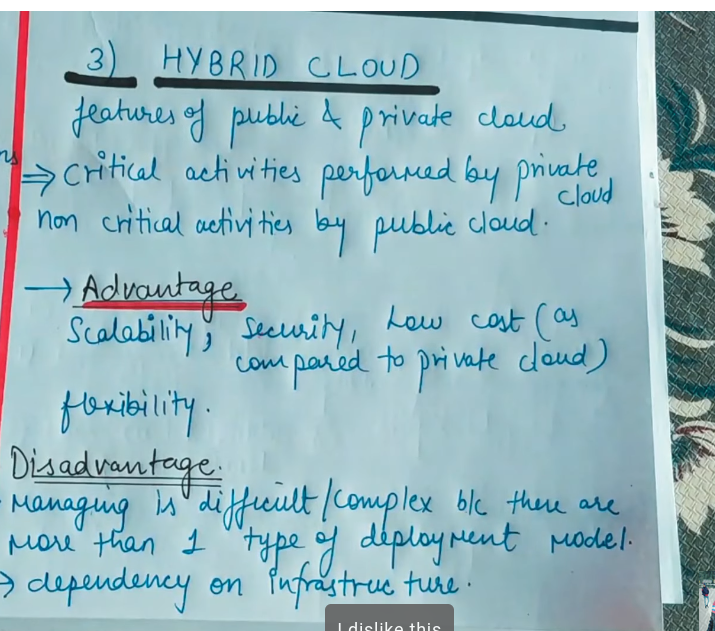 3) HYBRID CLOUD
features of public & private cloud
⇒ Critical activities performed by private
cloud
non critical activities by public cloud.
→ Advantage
Scalability, Security, Low cost (as
compared to private cloud)
flexibility.
Disadvantage.
Managing is difficult/complex b/c there are
more than 1 type of deployment model.
→ dependency on infrastructure.
I dislike this